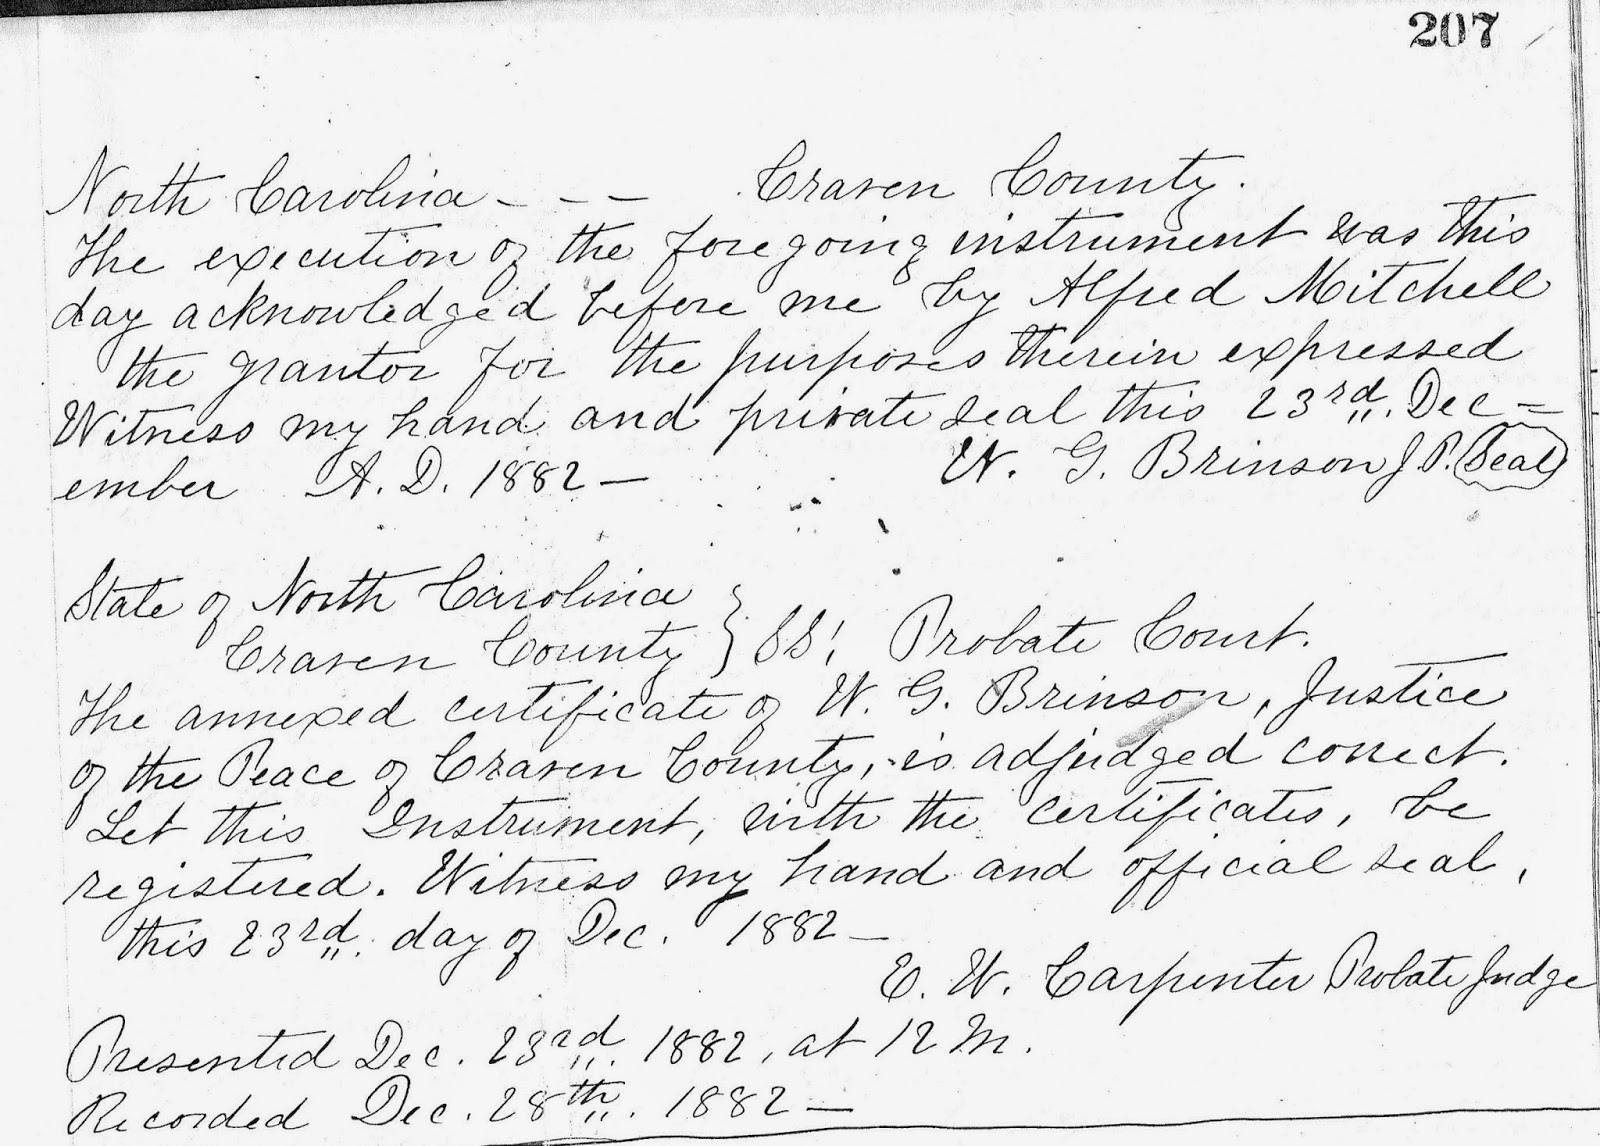 207
North Carolina - - - Craven County.
The execution of the foregoing instrument was this
day acknowledged before me by Alfred Mitchell
the grantor for the purposes therein expressed
Witness my hand and private seal this 23rd. Dec=
ember A. D. 1882 — W. G. Brinson J P. (Seal)
State of North Carolina
Craven County } SS! Probate Court.
The annexed certificate of W. G. Brinson, Justice
of the Peace of Craven County, is adjudged correct.
Let this Instrument, with the certificates, be
registered. Witness my hand and official seal,
this 23rd. day of Dec. 1882 —
E. W. Carpenter Probate Judge
Presented Dec. 23rd. 1882, at 12 M.
Recorded Dec. 28th. 1882 —